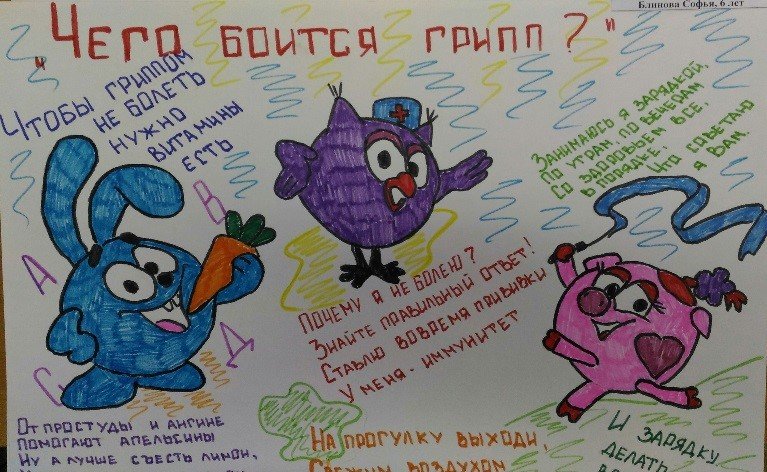 Блинова Софья, 6 лет
"Чего боится грипп?"
Чтобы гриппом
не болеть
нужно
витамины
есть
А
В
С
Д
Почему я не болею?
Знайте правильный ответ!
Ставлю вовремя прививки
У меня - иммунитет
Занимаюсь я зарядкой,
По утрам по вечерам
Со здоровьем все,
в порядке,
Что советаю
я Вам.
От простуды и ангине
помогают апельсины
Ну а лучше съесть лимон,
На прогулку выходи,
Свежим воздухом
И зарядку
делать